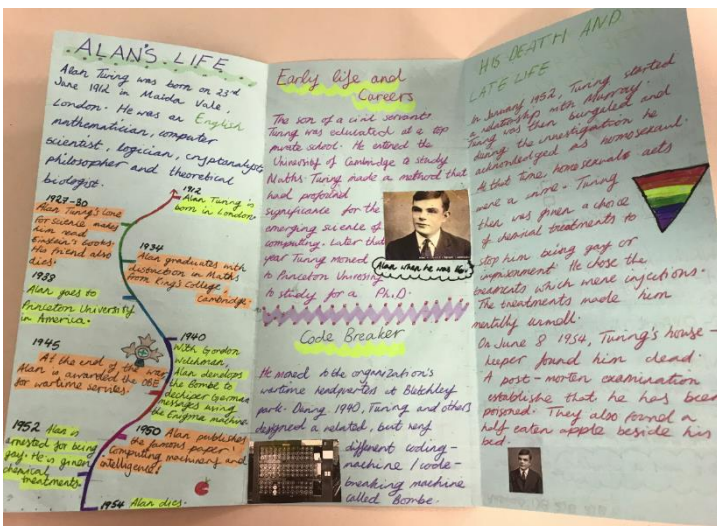 ALAN'S LIFE
Alan Turing was born on 23rd
June 1912 in Maida Vale,
London. He was an English
mathematician, computer
scientist, logician, cryptanalyst
philosopher and theoretical
biologist.
1912
Alan Turing is
born in London.
1927-30
Alan Turing's love
for science makes
him read
Einstein's books.
His friend also
dies.
1934
Alan graduates with
distinction in Maths
from King's College
Cambridge.
1938
Alan goes to
Princeton University
in America.
1940
With Gordon
Welchman,
Alan develops
the Bombe to
decipher German
messages using
the Enigma machine.
1945
At the end of the war
Alan is awarded the OBE
for wartime services.
1950 Alan publishes
the famous paper '
Computing machinery and
intelligence'.
1952 Alan is
arrested for being
gay. He is given
chemical
treatments.
1954 Alan dies.
Early life and
Careers
The son of a civil servants
Turing was educated at a top
private school. He entered the
University of Cambridge to study
Maths. Turing made a method that
had profound
significance for the
emerging science of
computing. Later that
year Turing moved
to Princeton University
to study for a Ph.D.
Alan when he was
Code Breaker
He moved to the organization's
wartime headquarters at Bletchley
park. During 1940, Turing and others
designed a related, but very
different coding-
machine / code-
breaking machine
called Bombe.
HIS DEATH AND
LATE LIFE
In January 1952, Turing started
a relationship with Murray.
Turing was then burgled and
during the investigation he
acknowledged as homosexual.
At that time homosexual acts
were a crime. Turing
then was given a choice
of chemical treatments to
stop him being gay or
imprisonment. He chose the
treatments which were injections.
The treatments made him
mentally unwell.
On June 8 1954, Turing's house-
keeper found him dead.
A post-morten examination
establishe that he has been
poisoned. They also found a
half eaten apple beside his
bed.